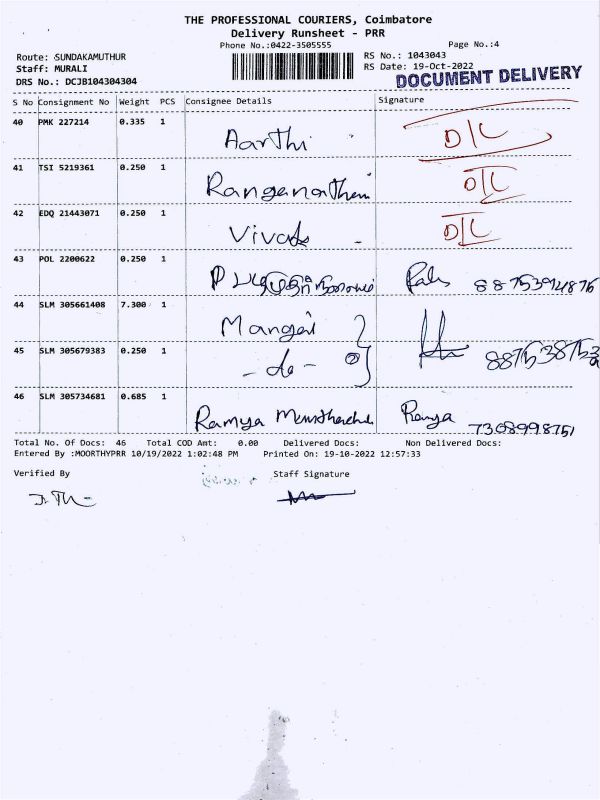 THE PROFESSIONAL COURIERS, Coimbatore
Delivery Runsheet - PRR
Phone No.:0422-3505555
Page No.:4
Route: SUNDAKAMUTHUR
RS No.: 1043043
Staff: MURALI
RS Date: 19-Oct-2022
DRS No.: DCJB104304304
DOCUMENT DELIVERY
S No Consignment No Weight PCS Consignee Details Signature
40 PMK 227214 0.335 1 Aarthi D/L
41 TSI 5219361 0.250 1 D/L
42 EDQ 21443071 0.250 1 D/L
43 POL 2200622 0.250 1 P
44 SLM 305661408 7.300 1 Mangai
45 SLM 305679383 0.250 1 - do - 2
46 SLM 305734681 0.685 1 Ramya Ramya 7308998751
Total No. Of Docs: 46 Total COD Amt: 0.00 Delivered Docs: Non Delivered Docs:
Entered By :MOORTHYPRR 10/19/2022 1:02:48 PM Printed On: 19-10-2022 12:57:33
Verified By Staff Signature